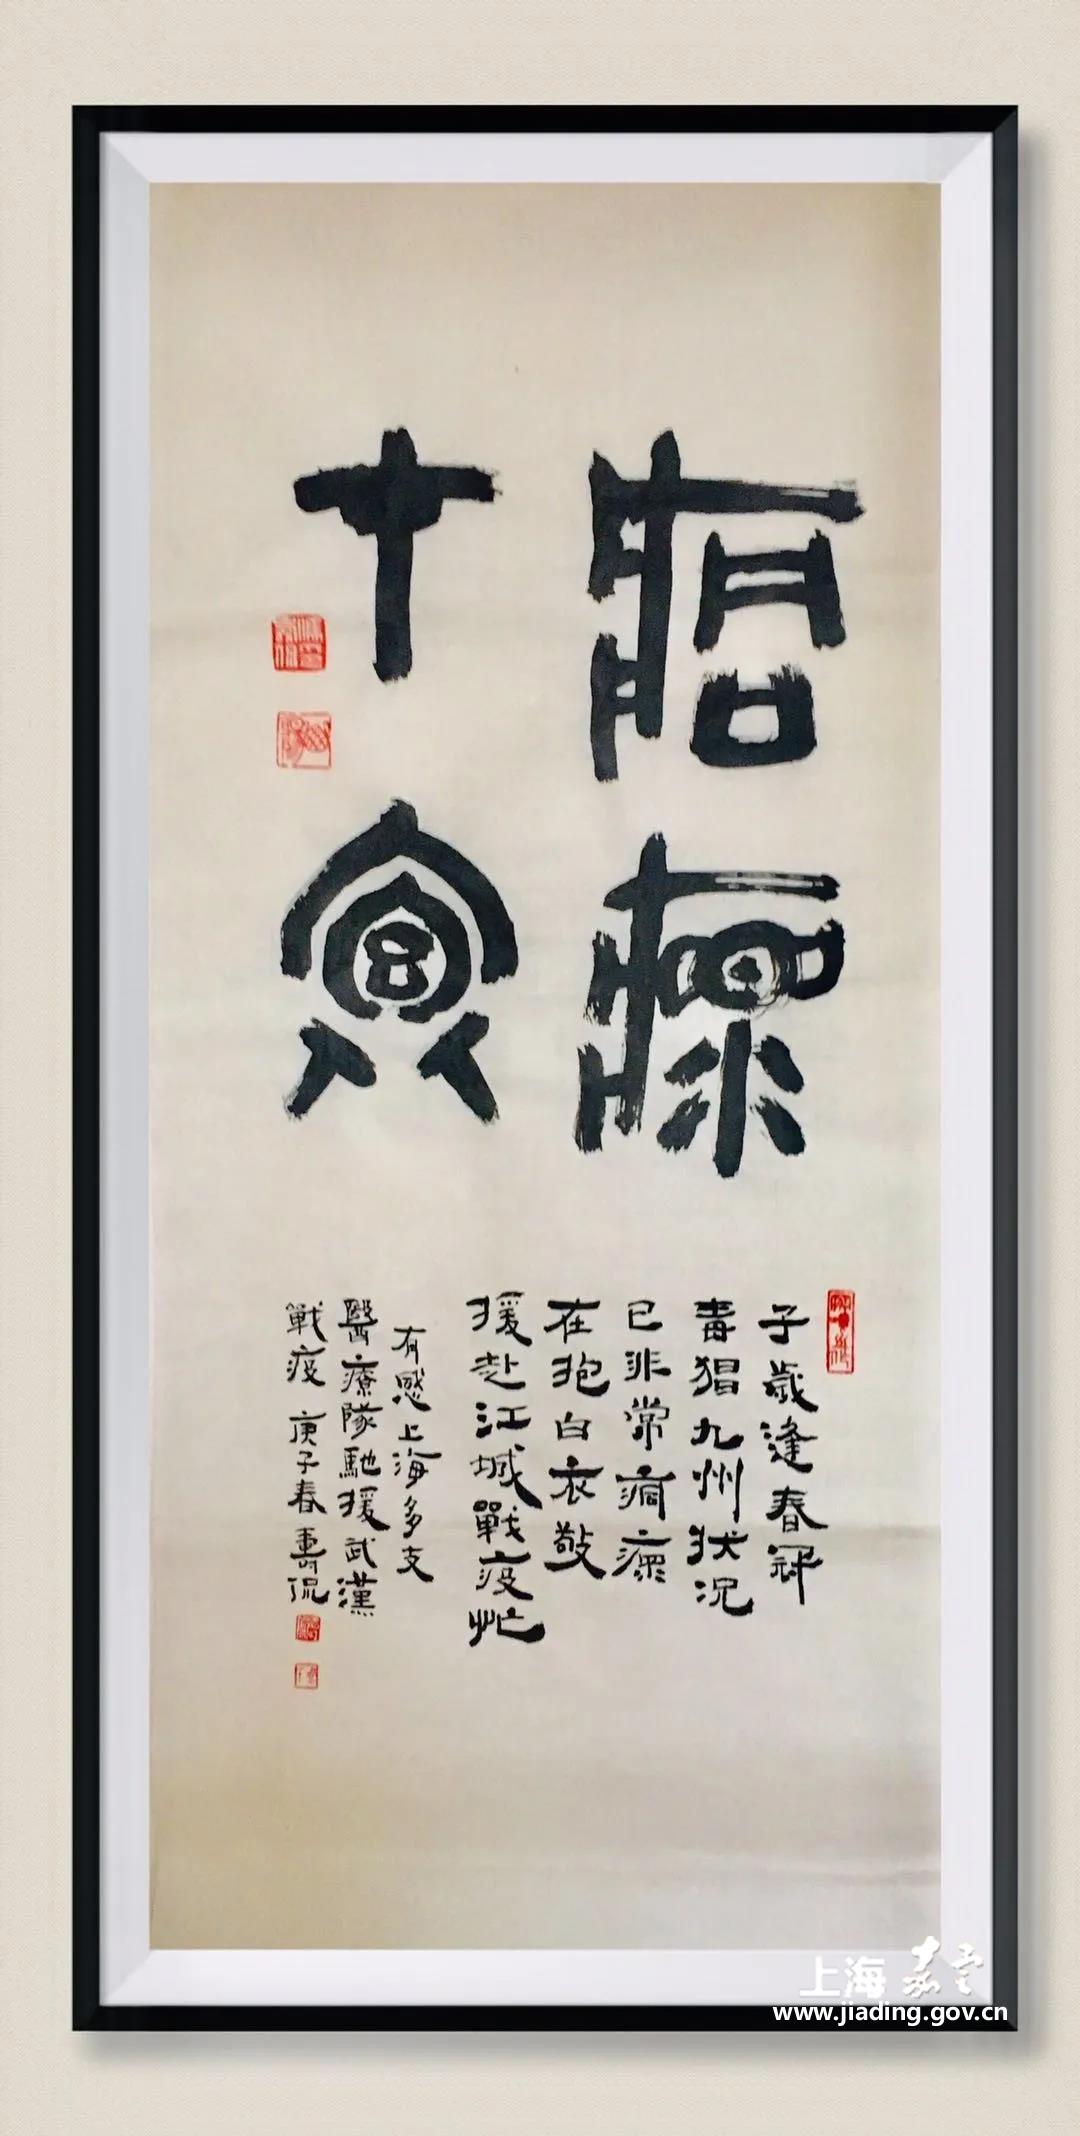 痌瘝
在抱
子歲逢春冠
毒猖九州狀況
已非常痌瘝
在抱白衣敬
援赴江城戰疫忙
有感上海多支
醫療隊馳援武漢
戰疫 庚子春
上海嘉定
www.jiading.gov.cn